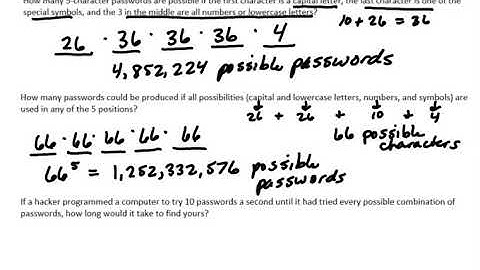 How many 5-character passwords are possible if the first character is a capital letter, the last character is one of the
special symbols, and the 3 in the middle are all numbers or lowercase letters?
10 + 26 = 36
26 · 36 · 36 · 36 · 4
4,852,224 possible passwords
How many passwords could be produced if all possibilities (capital and lowercase letters, numbers, and symbols) are
used in any of the 5 positions?
26 + 26 + 10 + 4
66 possible
characters
66 · 66 · 66 · 66 · 66
66⁵ = 1,252,332,576 possible
passwords
If a hacker programmed a computer to try 10 passwords a second until it had tried every possible combination of
passwords, how long would it take to find yours?